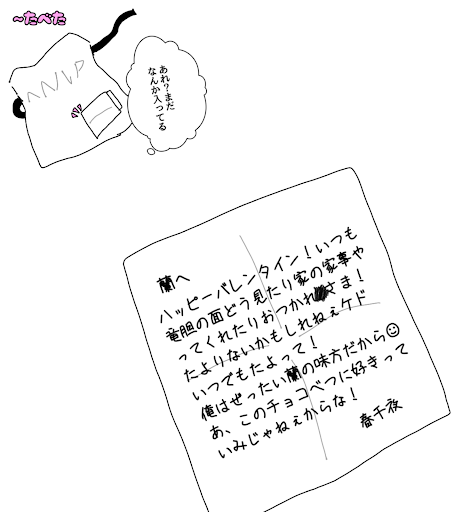 ~たべた
あれ?まだ
なんか入ってる
蘭へ
ハッピーバレンタイン!いつも
竜胆の面どう見たり家の家事や
ってくれたりおつかれさま!
たよりないかもしれねぇケド
いつでもたよって!
俺はぜったい蘭の味方だから☺
あ、このチョコべつに好きって
いみじゃねぇからな!
春千夜